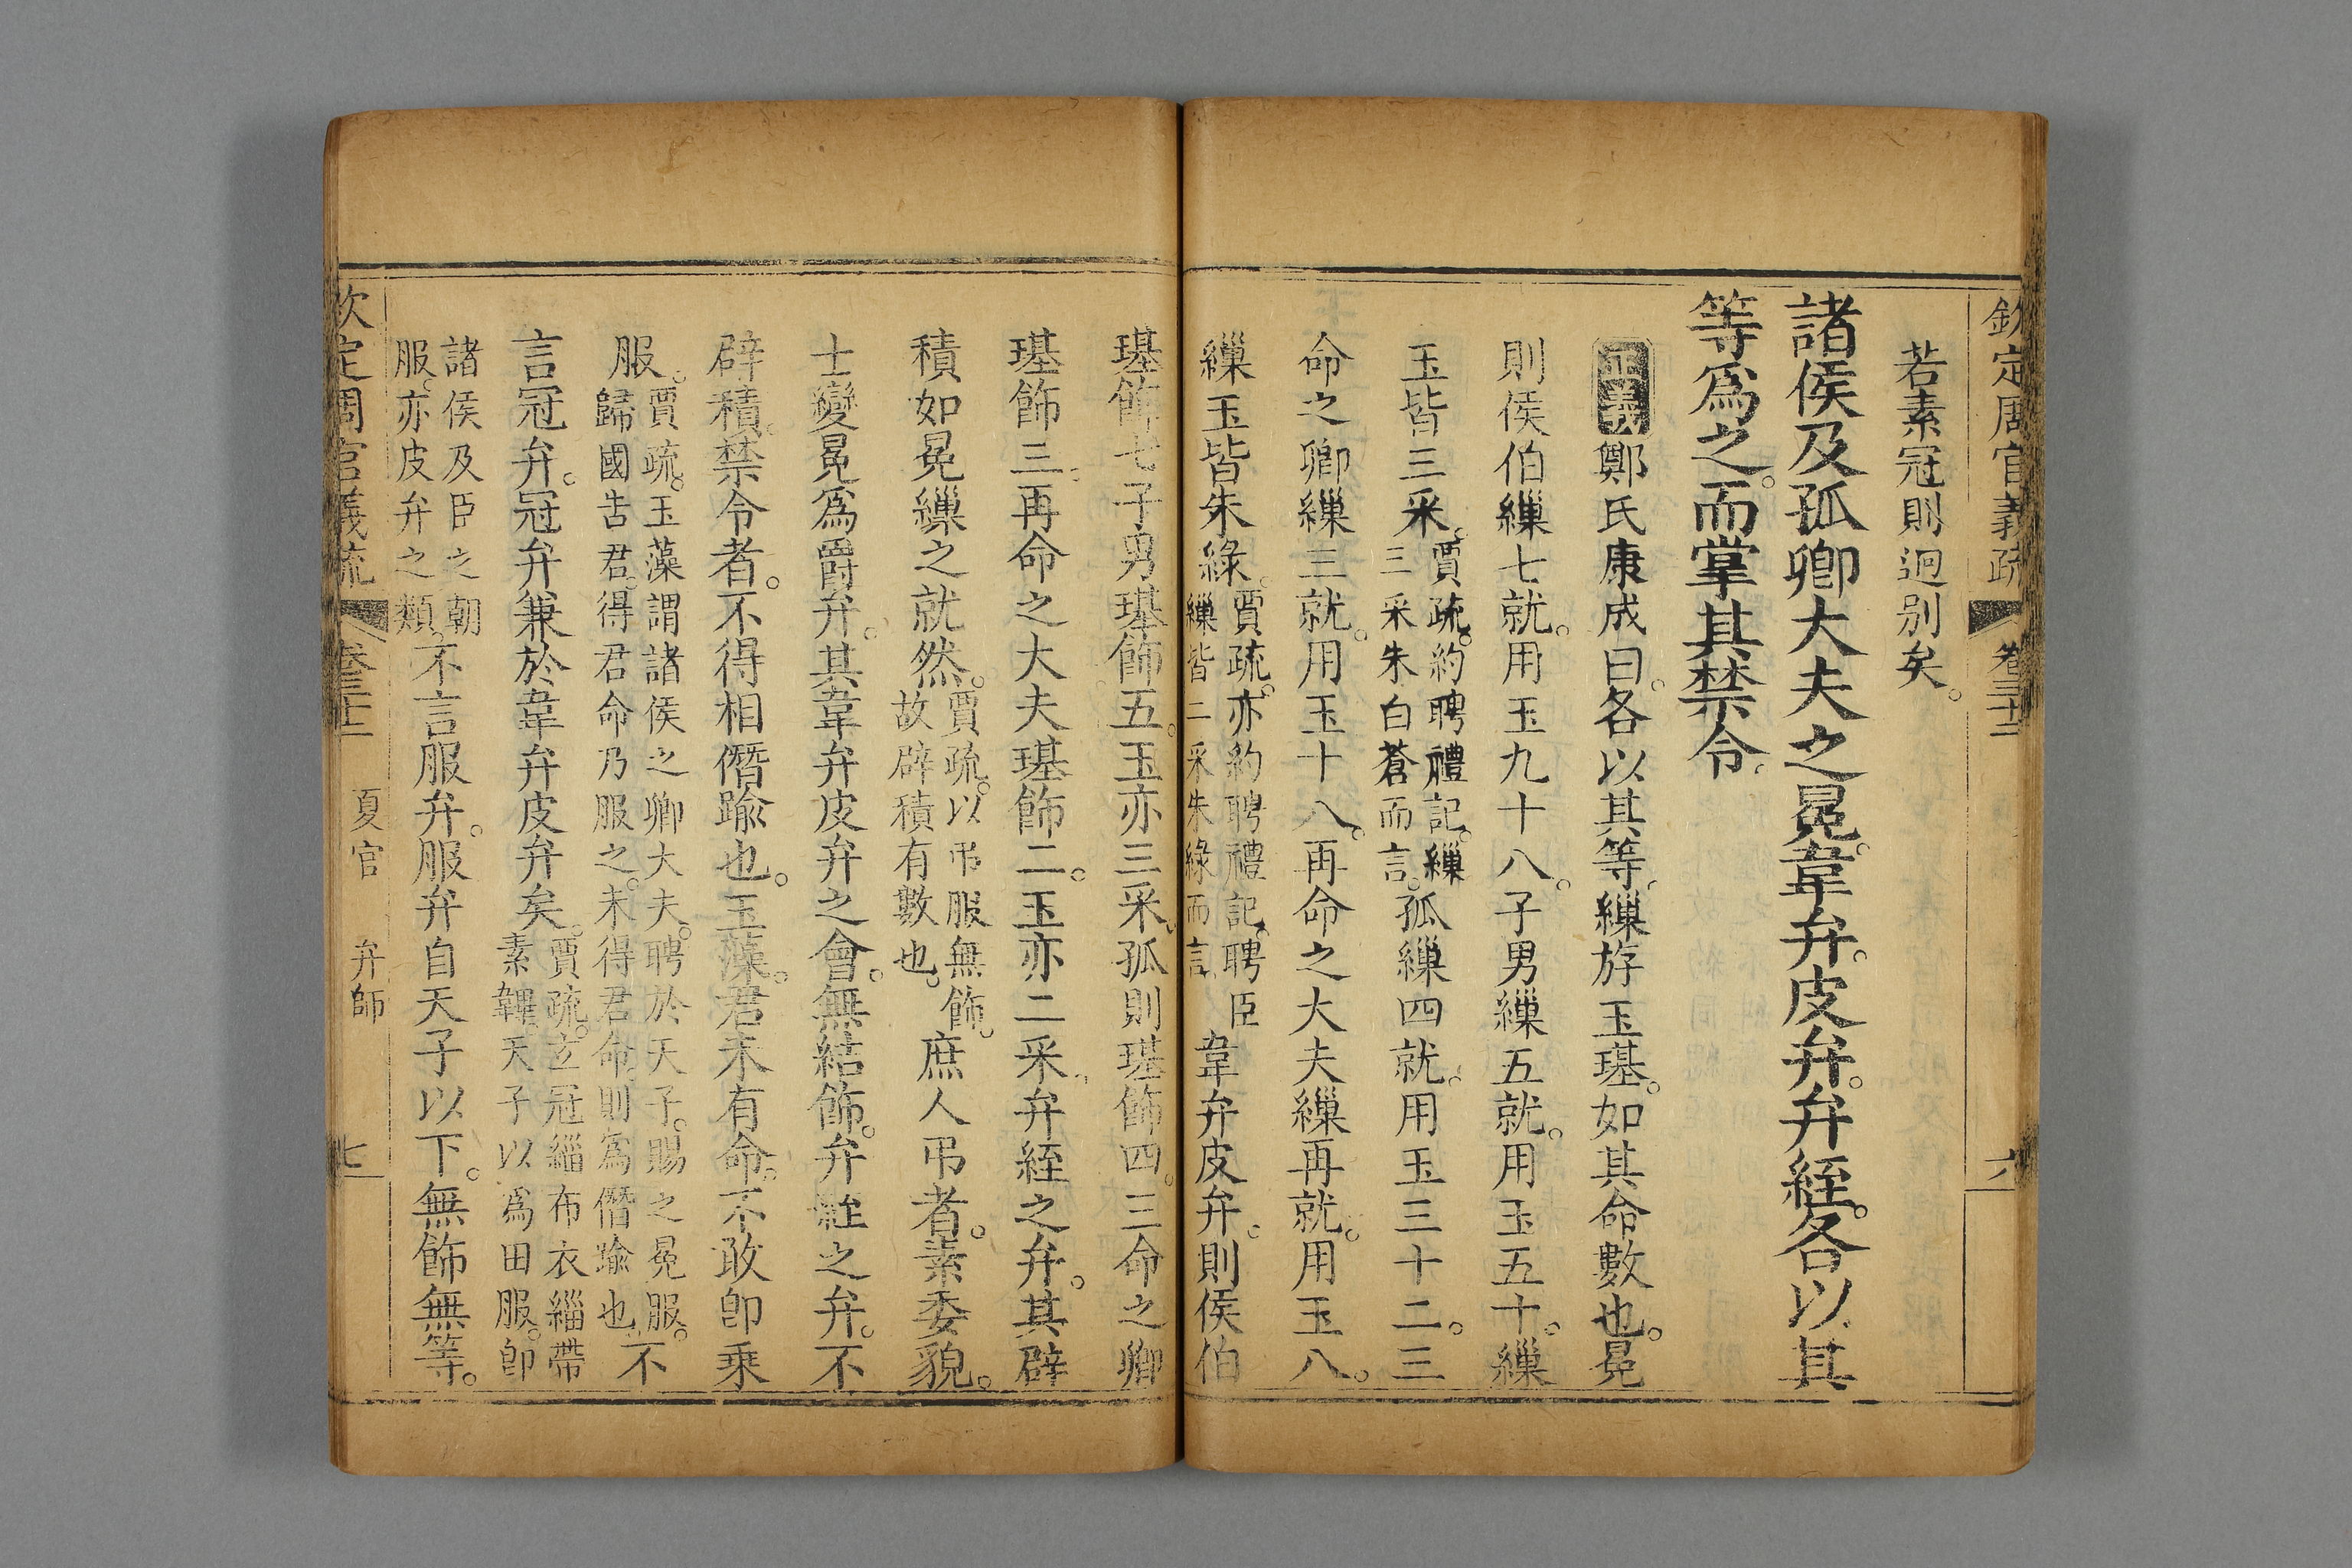 欽定周官義疏 卷三十二 六
若素冠則迥别矣。
諸侯及孤卿大夫之冕。韋弁。皮弁。弁絰。各以其
等爲之。而掌其禁令。
正義 鄭氏康成曰。各以其等。繅斿玉璂。如其命數也。冕
則侯伯繅七就。用玉九十八。子男繅五就。用玉五十。繅
玉皆三采。賈疏。約聘禮記。繅三采朱白蒼而言。孤繅四就。用玉三十二。三
命之卿繅三就。用玉十八。再命之大夫繅再就。用玉八。
繅玉皆朱綠。賈疏。亦約聘禮記。聘臣繅皆二采朱綠而言。韋弁皮弁。則侯伯
璂飾七子男璂飾五。玉亦三采。孤則璂飾四。三命之卿
璂飾三。再命之大夫璂飾二。玉亦二采。弁絰之弁。其辟
積如冕繅之就然。賈疏。以弔服無飾。故辟積有數也。庶人弔者。素委貌。
士變冕爲爵弁。其韋弁皮弁之會。無結飾。弁絰之弁。不
辟積。禁令者。不得相僭踰也。玉藻。君未有命。不敢卽乘
服。賈疏。玉藻謂諸侯之卿大夫。聘於天子。賜之冕服。歸國告君。得君命乃服之。未得君命。則爲僭踰也。不
言冠弁。冠弁兼於韋弁皮弁矣。賈疏。玄冠緇布衣緇帶素韠。天子以爲田服。卽
諸侯及臣之朝服。亦皮弁之類。不言服弁。服弁自天子以下。無飾無等。
欽定周官義疏 卷三十二 夏官 弁師 七